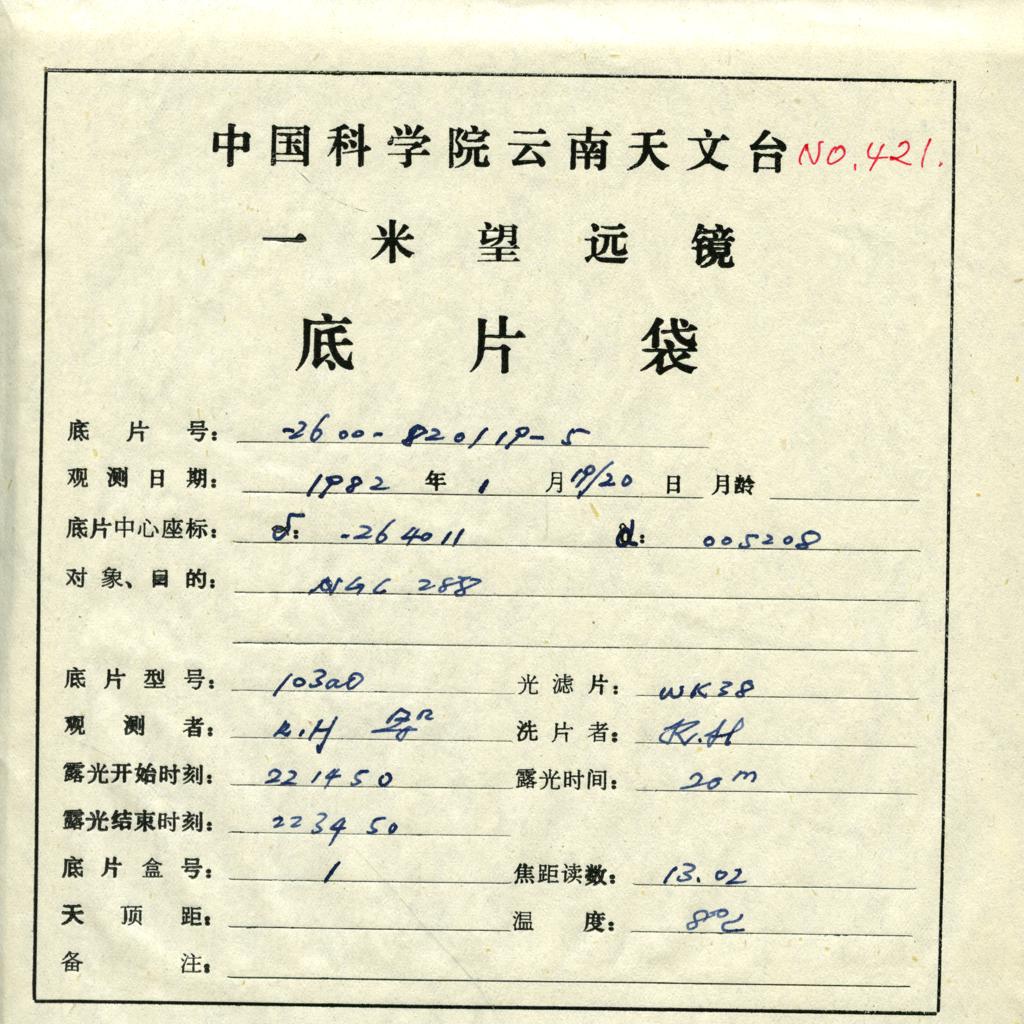 中国科学院云南天文台 NO.421.
一米望远镜
底片袋
底片号: -2600-820119-5
观测日期: 1982 年 1 月 19/20 日 月龄
底片中心座标: δ: -264011 α: 005208
对象、目的: NGC 288
底片型号: 103aO 光滤片: WK38
观测者: K.H 洗片者: R.H
露光开始时刻: 221450 露光时间: 20m
露光结束时刻: 223450
底片盒号: 1 焦距读数: 13.02
天顶距: 温度: 8℃
备注: